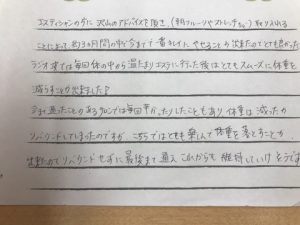 エステティシャンの方に 沢山のアドバイスを頂き、(朝フルーツやストレッチetc) 取り入れる
ことによって、約3ヶ月間の中で今までで一番キレイに やせることが 出来たのでとても良かった
ラジオ波では毎回体の中から温たまり エステに行った後はとてもスムーズに体重を
減らすことが出来ました♪
通ったことのあるサロンでは毎回 だったりしたこともあり 体重は減ったが
リバウンドしてしまったのですが、こちらではとても楽しんで体重を落とすことが
出来たので リバウンドせずに最後まで通え これからも 維持していけそうです